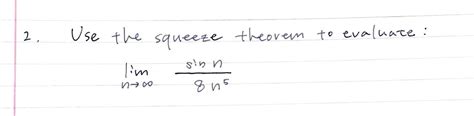 2. Use the squeeze theorem to evaluate:
lim sin n
n→∞ 8n⁵